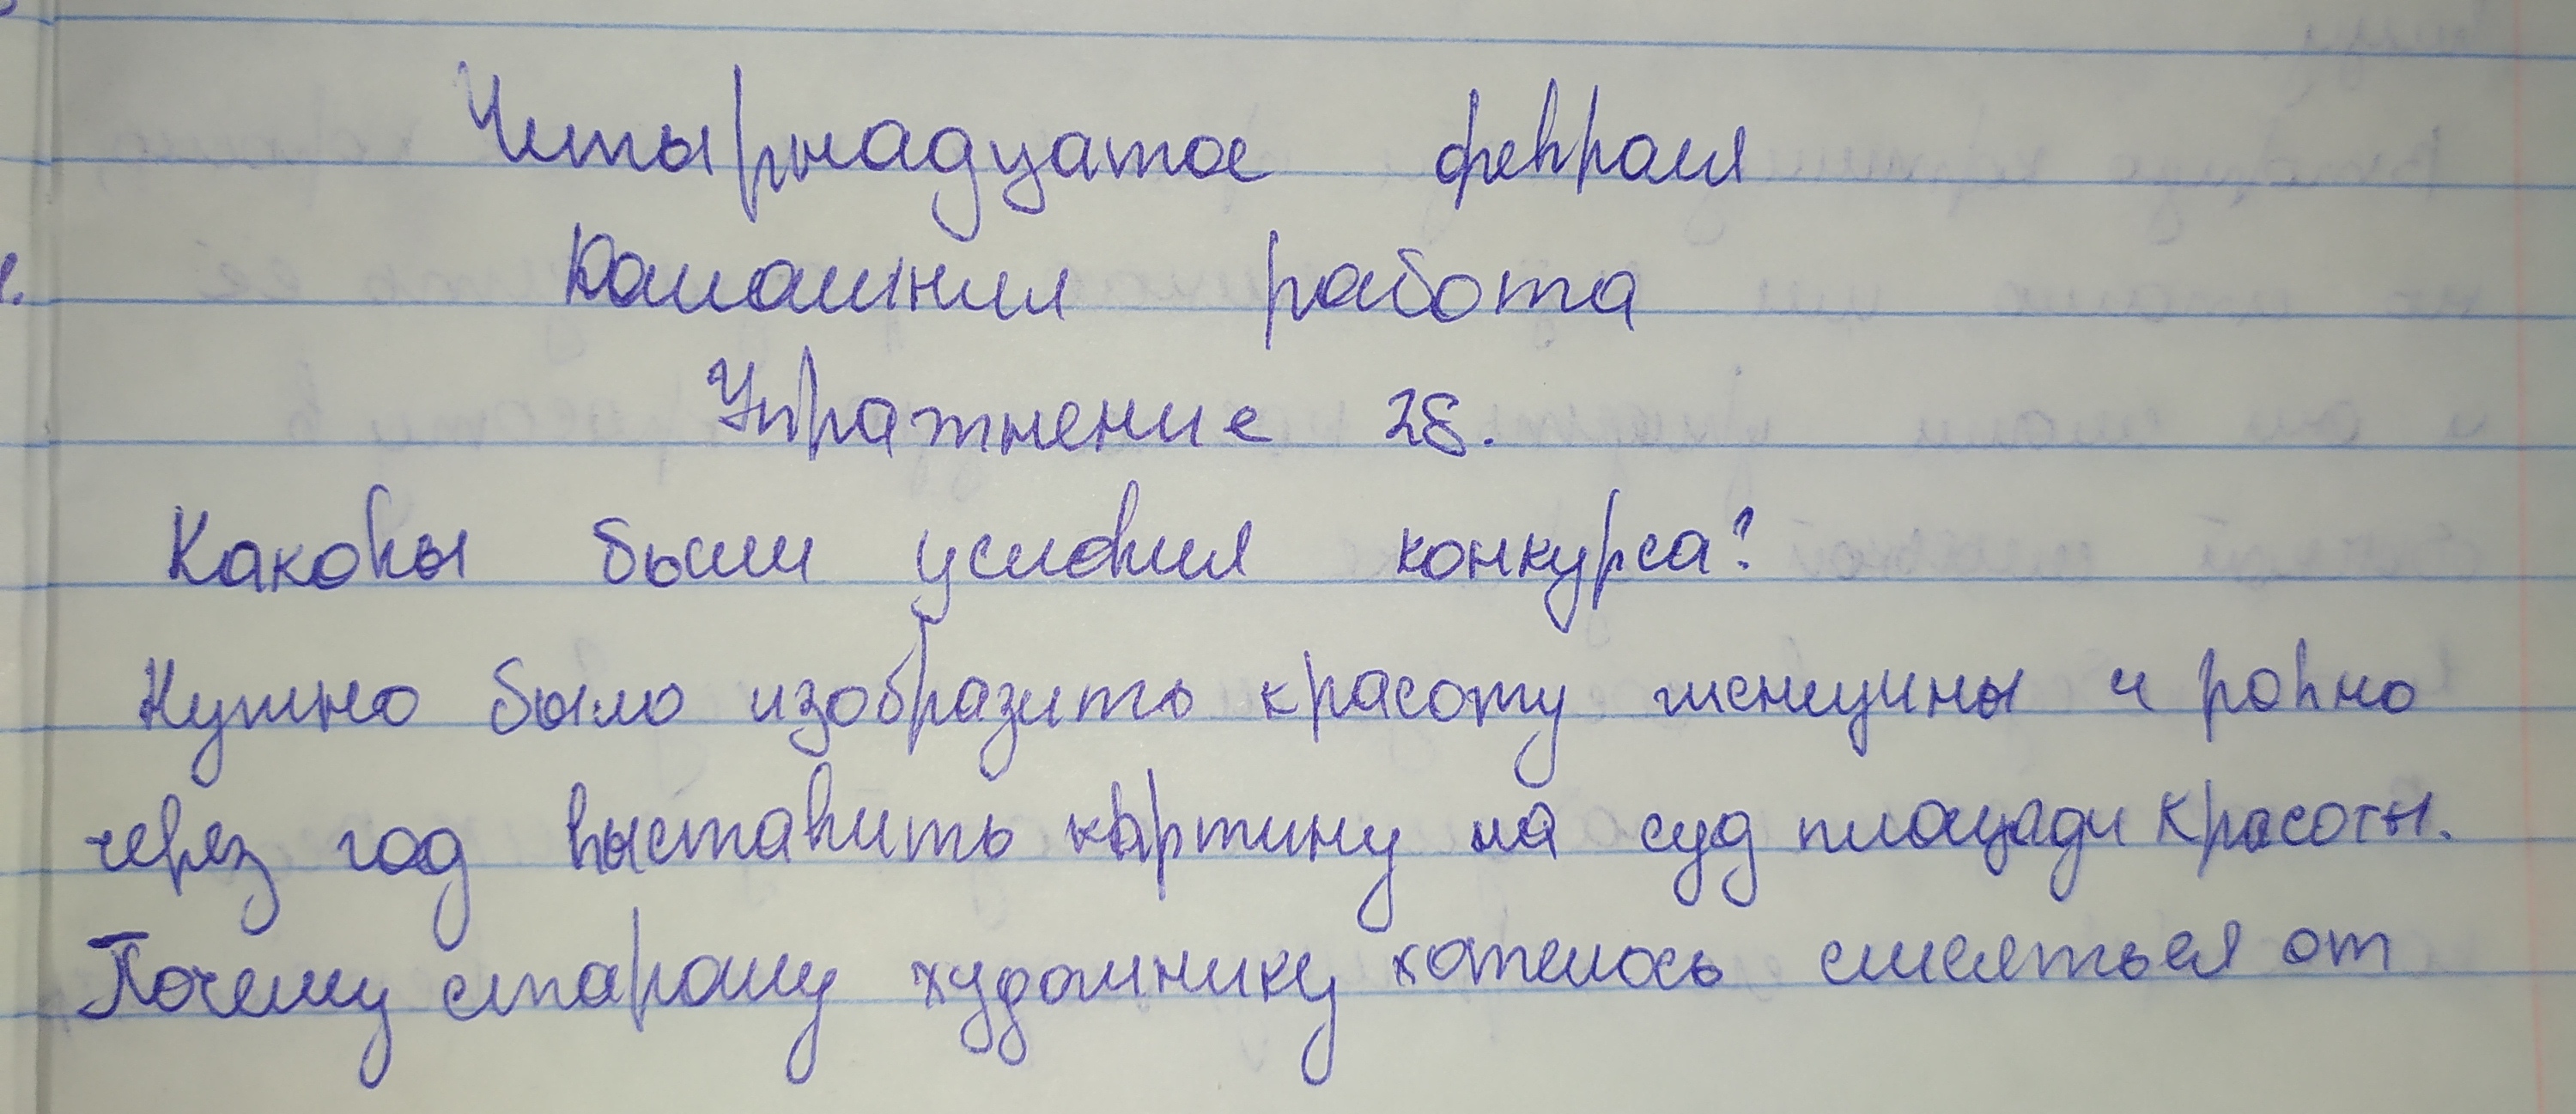 Четырнадцатое февраля
Домашняя работа
Упражнение 28.
Каковы были условия конкурса?
Нужно было изобразить красоту женщины и ровно
через год выставить картину на суд площади красоты.
Почему старому художнику хотелось смеяться от